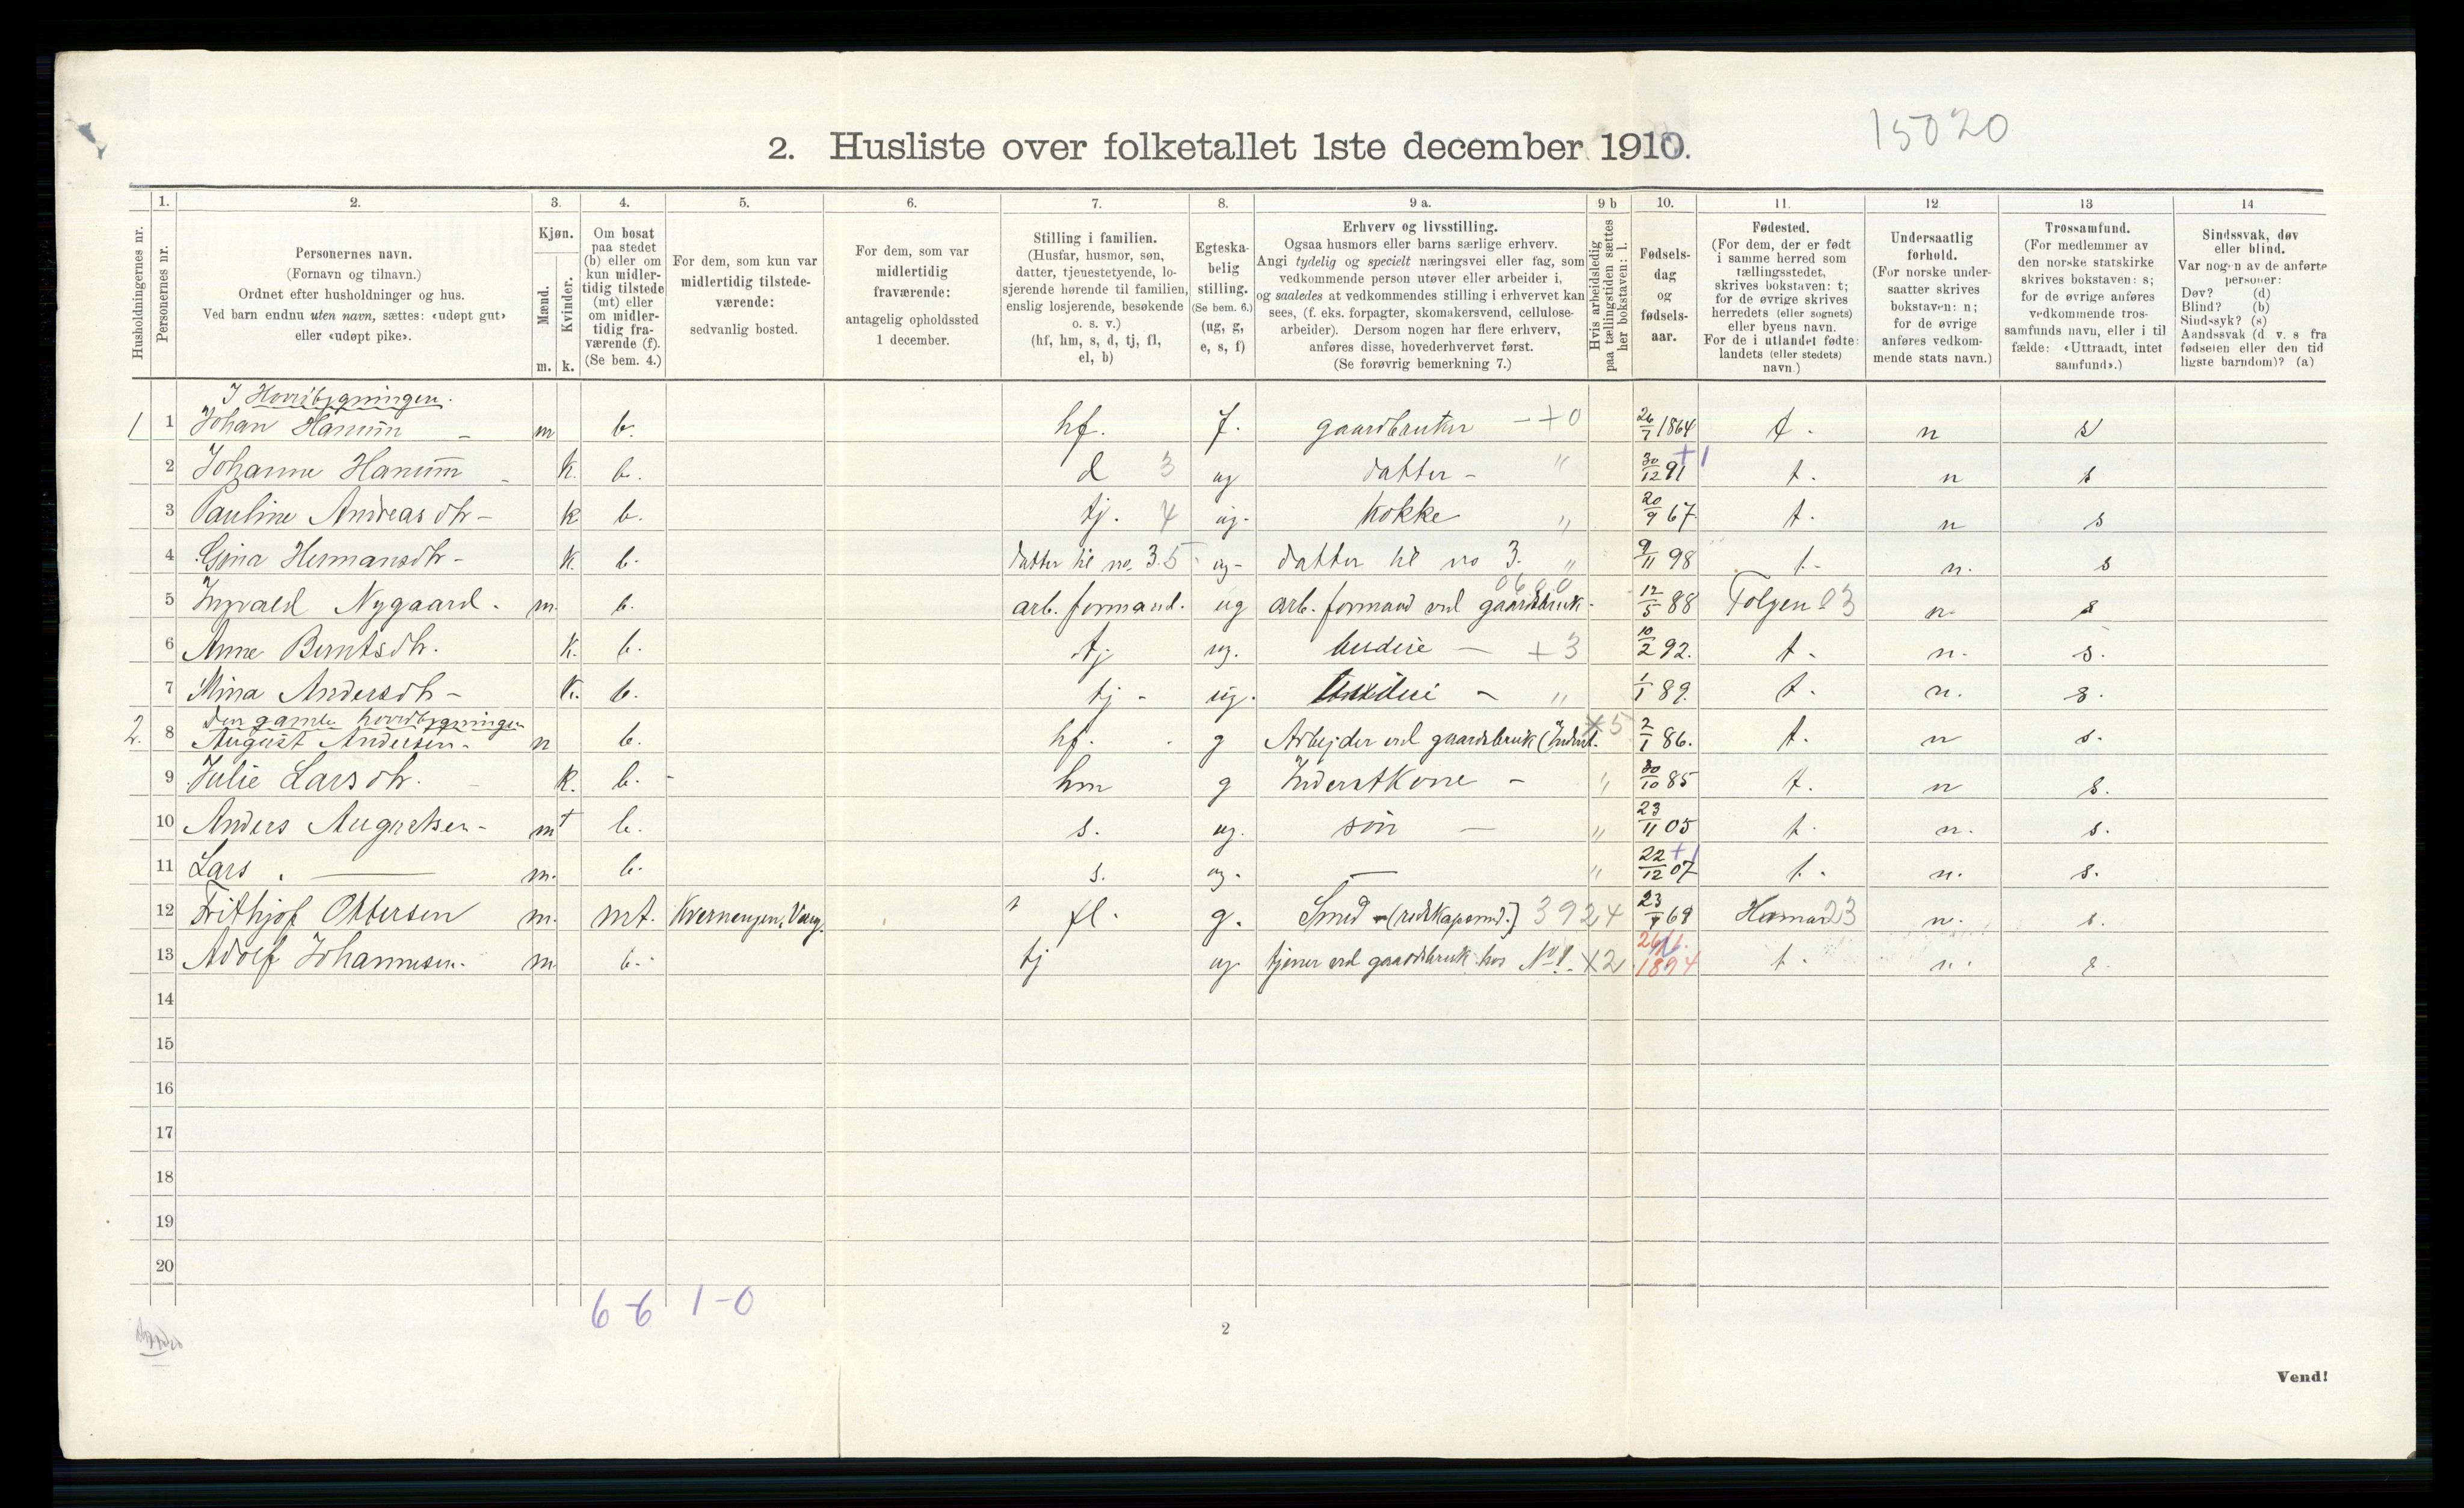 15020
2. Husliste over folketallet 1ste december 1910.
1. 2. 3. 4. 5. 6. 7. 8. 9 a. 9 b 10. 11. 12. 13 14
Husholdningernes nr.
Personernes nr.
Personernes navn.
(Fornavn og tilnavn.)
Ordnet efter husholdninger og hus.
Ved barn endnu uten navn, sættes: «udøpt gut»
eller «udøpt pike».
Kjøn.
Mænd.
Kvinder.
m. k.
Om bosat
paa stedet
(b) eller om
kun midler-
tidig tilstede
(mt) eller
om midler-
tidig fra-
værende (f).
(Se bem. 4.)
For dem, som kun var
midlertidig tilstede-
værende:
sedvanlig bosted.
For dem, som var
midlertidig
fraværende:
antagelig opholdssted
1 december.
Stilling i familien.
(Husfar, husmor, søn,
datter, tjenestetyende, lo-
sjerende hørende til familien,
enslig losjerende, besøkende
o. s. v.)
(hf, hm, s, d, tj, fl,
el, b)
Egteska-
belig
stilling.
(Se bem. 6.)
(ug, g,
e, s, f)
Erhverv og livsstilling.
Ogsaa husmors eller barns særlige erhverv.
Angi tydelig og specielt næringsvei eller fag, som
vedkommende person utøver eller arbeider i,
og saaledes at vedkommendes stilling i erhvervet kan
sees, (f. eks. forpagter, skomakersvend, cellulose-
arbeider). Dersom nogen har flere erhverv,
anføres disse, hovederhvervet først.
(Se forøvrig bemerkning 7.)
Hvis arbeidsledig
paa tællingstiden sættes
her bokstaven: l.
Fødsels-
dag
og
fødsels-
aar.
Fødested.
(For dem, der er født
i samme herred som
tællingsstedet,
skrives bokstaven: t;
for de øvrige skrives
herredets (eller sognets)
eller byens navn.
For de i utlandet fødte:
landets (eller stedets)
navn.)
Undersaatlig
forhold.
(For norske under-
saatter skrives
bokstaven: n;
for de øvrige
anføres vedkom-
mende stats navn.)
Trossamfund.
(For medlemmer av
den norske statskirke
skrives bokstaven: s;
for de øvrige anføres
vedkommende tros-
samfunds navn, eller i til
fælde: «Uttraadt, intet
samfund».)
Sindssvak, døv
eller blind.
Var nogen av de anførte
personer:
Døv? (d)
Blind? (b)
Sindssyk? (s)
Aandssvak (d v. s fra
fødselen eller den tid
ligste barndom)? (a)
I Hovedbygningen.
1 1 Johan Hanum m b. hf. f. gaardbruker - +0 26/7 1864 t. n s
2 Johanne Hanum k. b. d 3 ug datter - " 30/12 91 +1 t. n s
3 Pauline Andreasdtr - k b. tj. 4 ug. kokke " 20/9 67 t. n s
4 Gina Hermansdtr - k. b. datter til no. 3. 5 ug- datter til no 3. " 9/11 98 t. n. s
5 Ingvald Nygaard. m. b. arb. formand. ug arb. formand ved gaardsbruk. 12/5 88 Tolgen 03 n. s
6 Anne Berntsdtr. k. b. tj ug. budeie - +3 10/2 92. t. n. s.
7 Mina Andersdtr - k. b. tj - ug. - " 1/1 89. t. n. s.
Den gamle hovedbygningen
2. 8 August Andersen. m b. hf. g Arbejder ved gaardsbruk (Inderst. 2/1 86. t. n s.
9 Julie Larsdtr. k. b. hm g Inderstkone - " 30/10 85 t. n s.
10 Anders Augustsen - m b. s. ug. søn - " 23/11 05 t. n. s.
11 Lars - m. b. s. ug. - " 22/12 07 +1 t. n. s.
12 Frithjof Ottersen m. mt. fl. g. Smed (redskapsmd.) 3924 69 Hamar 23 n. s.
13 Adolf Johannesen. m b. tj ug tjener ved gaardsbruk hos No 1. x2 1894 t. n. s.
14
15
16
17
18
19
20
6-6 1-0
2
Vend!